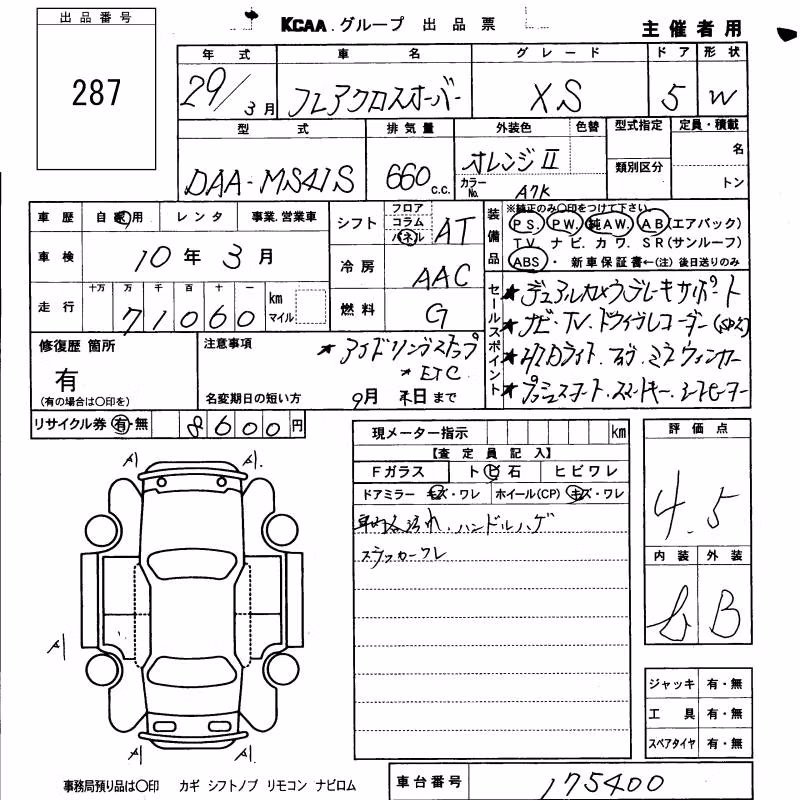 出品番号
287
KCAA.グループ 出品票
主催者用
年式 車名 グレード ドア 形状
29/3月 フレアクロスオーバー XS 5 W
型式 排気量 外装色 色替 型式指定 定員・積載
DAA-MS41S 660c.c. オレンジⅡ 類別区分 名
カラーNo. A7K トン
車歴 自家用 レンタ 事業.営業車
シフト フロア コラム パネル AT
装備品
※純正のみ〇印をつけて下さい。
PS. PW. 純AW. AB(エアバック)
TV. ナビ. カワ. SR(サンルーフ)
ABS・ 新車保証書←(注)後日送りのみ
車検 10年3月
冷房 AAC
走行 十万 万 千 百 十 一
71060 km マイル
燃料 G
セールスポイント
★デュアルカメラブレーキサポート
★ナビ・TV.ドライブレコーダー
★HIDライト.フォグ.ミラーウィンカー
★プッシュスタート.スマートキー.シートヒーター
修復歴 箇所
有
(有の場合は〇印を)
注意事項
★アイドリングストップ
★ETC
名変期日の短い方 9月末日まで
リサイクル券 有・無 8600円
現メーター指示 km
【査定員記入】
Fガラス トビ石 ヒビワレ
ドアミラー キズ・ワレ ホイール(CP) キズ・ワレ
車内汚れ.ハンドルハゲ
ステッカーワレ
評価点
4.5
内装 外装
b B
A1 A1
A1 A1
A1 A1
ジャッキ 有・無
工具 有・無
スペアタイヤ 有・無
事務局預り品は〇印 カギ シフトノブ リモコン ナビロム
車台番号 175400